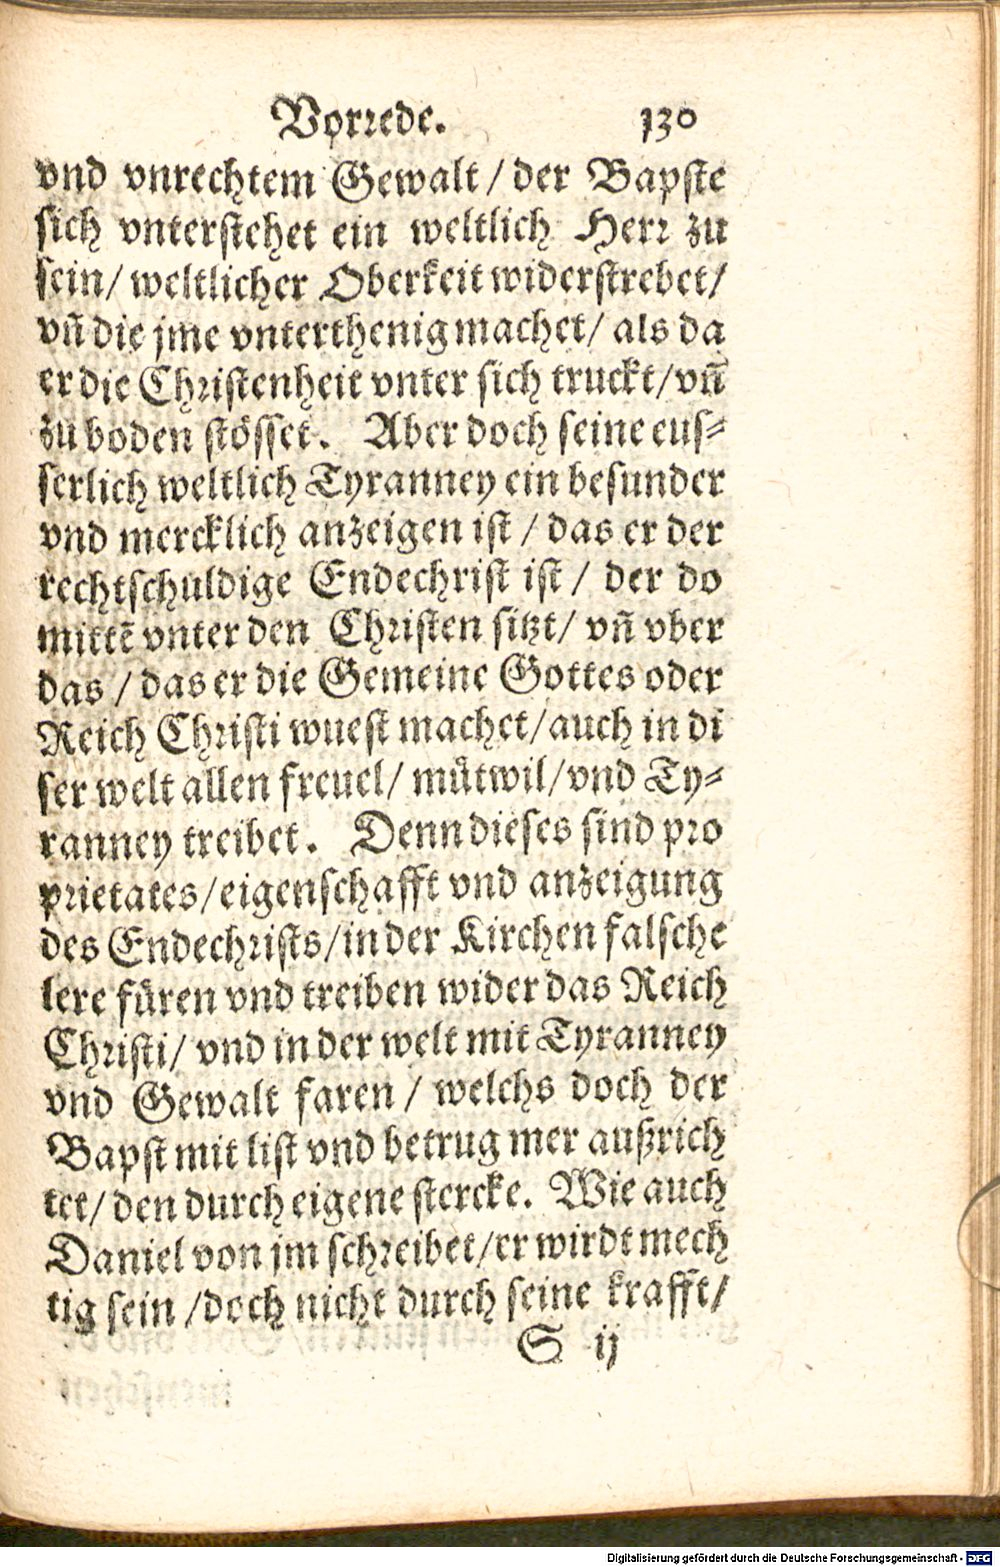 Vorrede. 130
vnd vnrechtem Gewalt / der Bapste
sich vnterstehet ein weltlich Herr zu
sein/ weltlicher Oberkeit widerstrebet/
vñ die jme vnterthenig machet/ als da
er die Christenheit vnter sich truckt/vñ
zu boden stösset. Aber doch seine eus-
serlich weltlich Tyranney ein besunder
vnd mercklich anzeigen ist / das er der
rechtschuldige Endechrist ist / der do
mittẽ vnter den Christen sitzt/ vñ vber
das / das er die Gemeine Gottes oder
Reich Christi wuest machet/auch in di
ser welt allen freuel/ můtwil/vnd Ty-
ranney treibet. Denn dieses sind pro
prietates/eigenschafft vnd anzeigung
des Endechrists/in der Kirchen falsche
lere füren vnd treiben wider das Reich
Christi/ vnd in der welt mit Tyranney
vnd Gewalt faren / welchs doch der
Bapst mit list vnd betrug mer außrich
tet/ den durch eigene stercke. Wie auch
Daniel von jm schreibet/er wirdt mech
tig sein /doch nicht durch seine krafft/
S ij
Digitalisierung gefördert durch die Deutsche Forschungsgemeinschaft - DFG